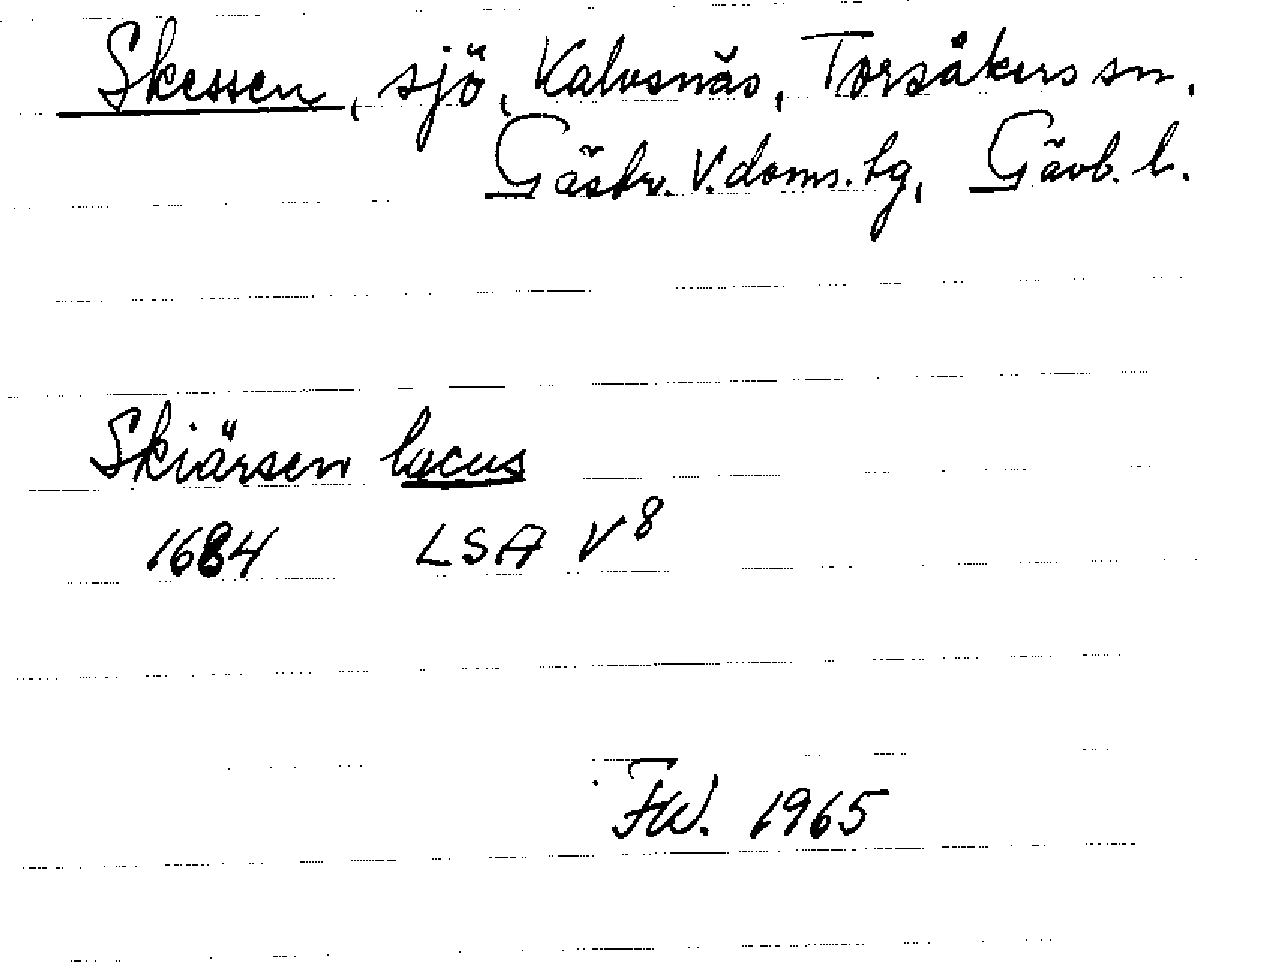 Skessen, sjö, Kalvsnäs, Torsåkers sn,
Gästr. V. doms. tg, Gävb. l.
Skiärsen lacus
1684 LSA V8
FW. 1965